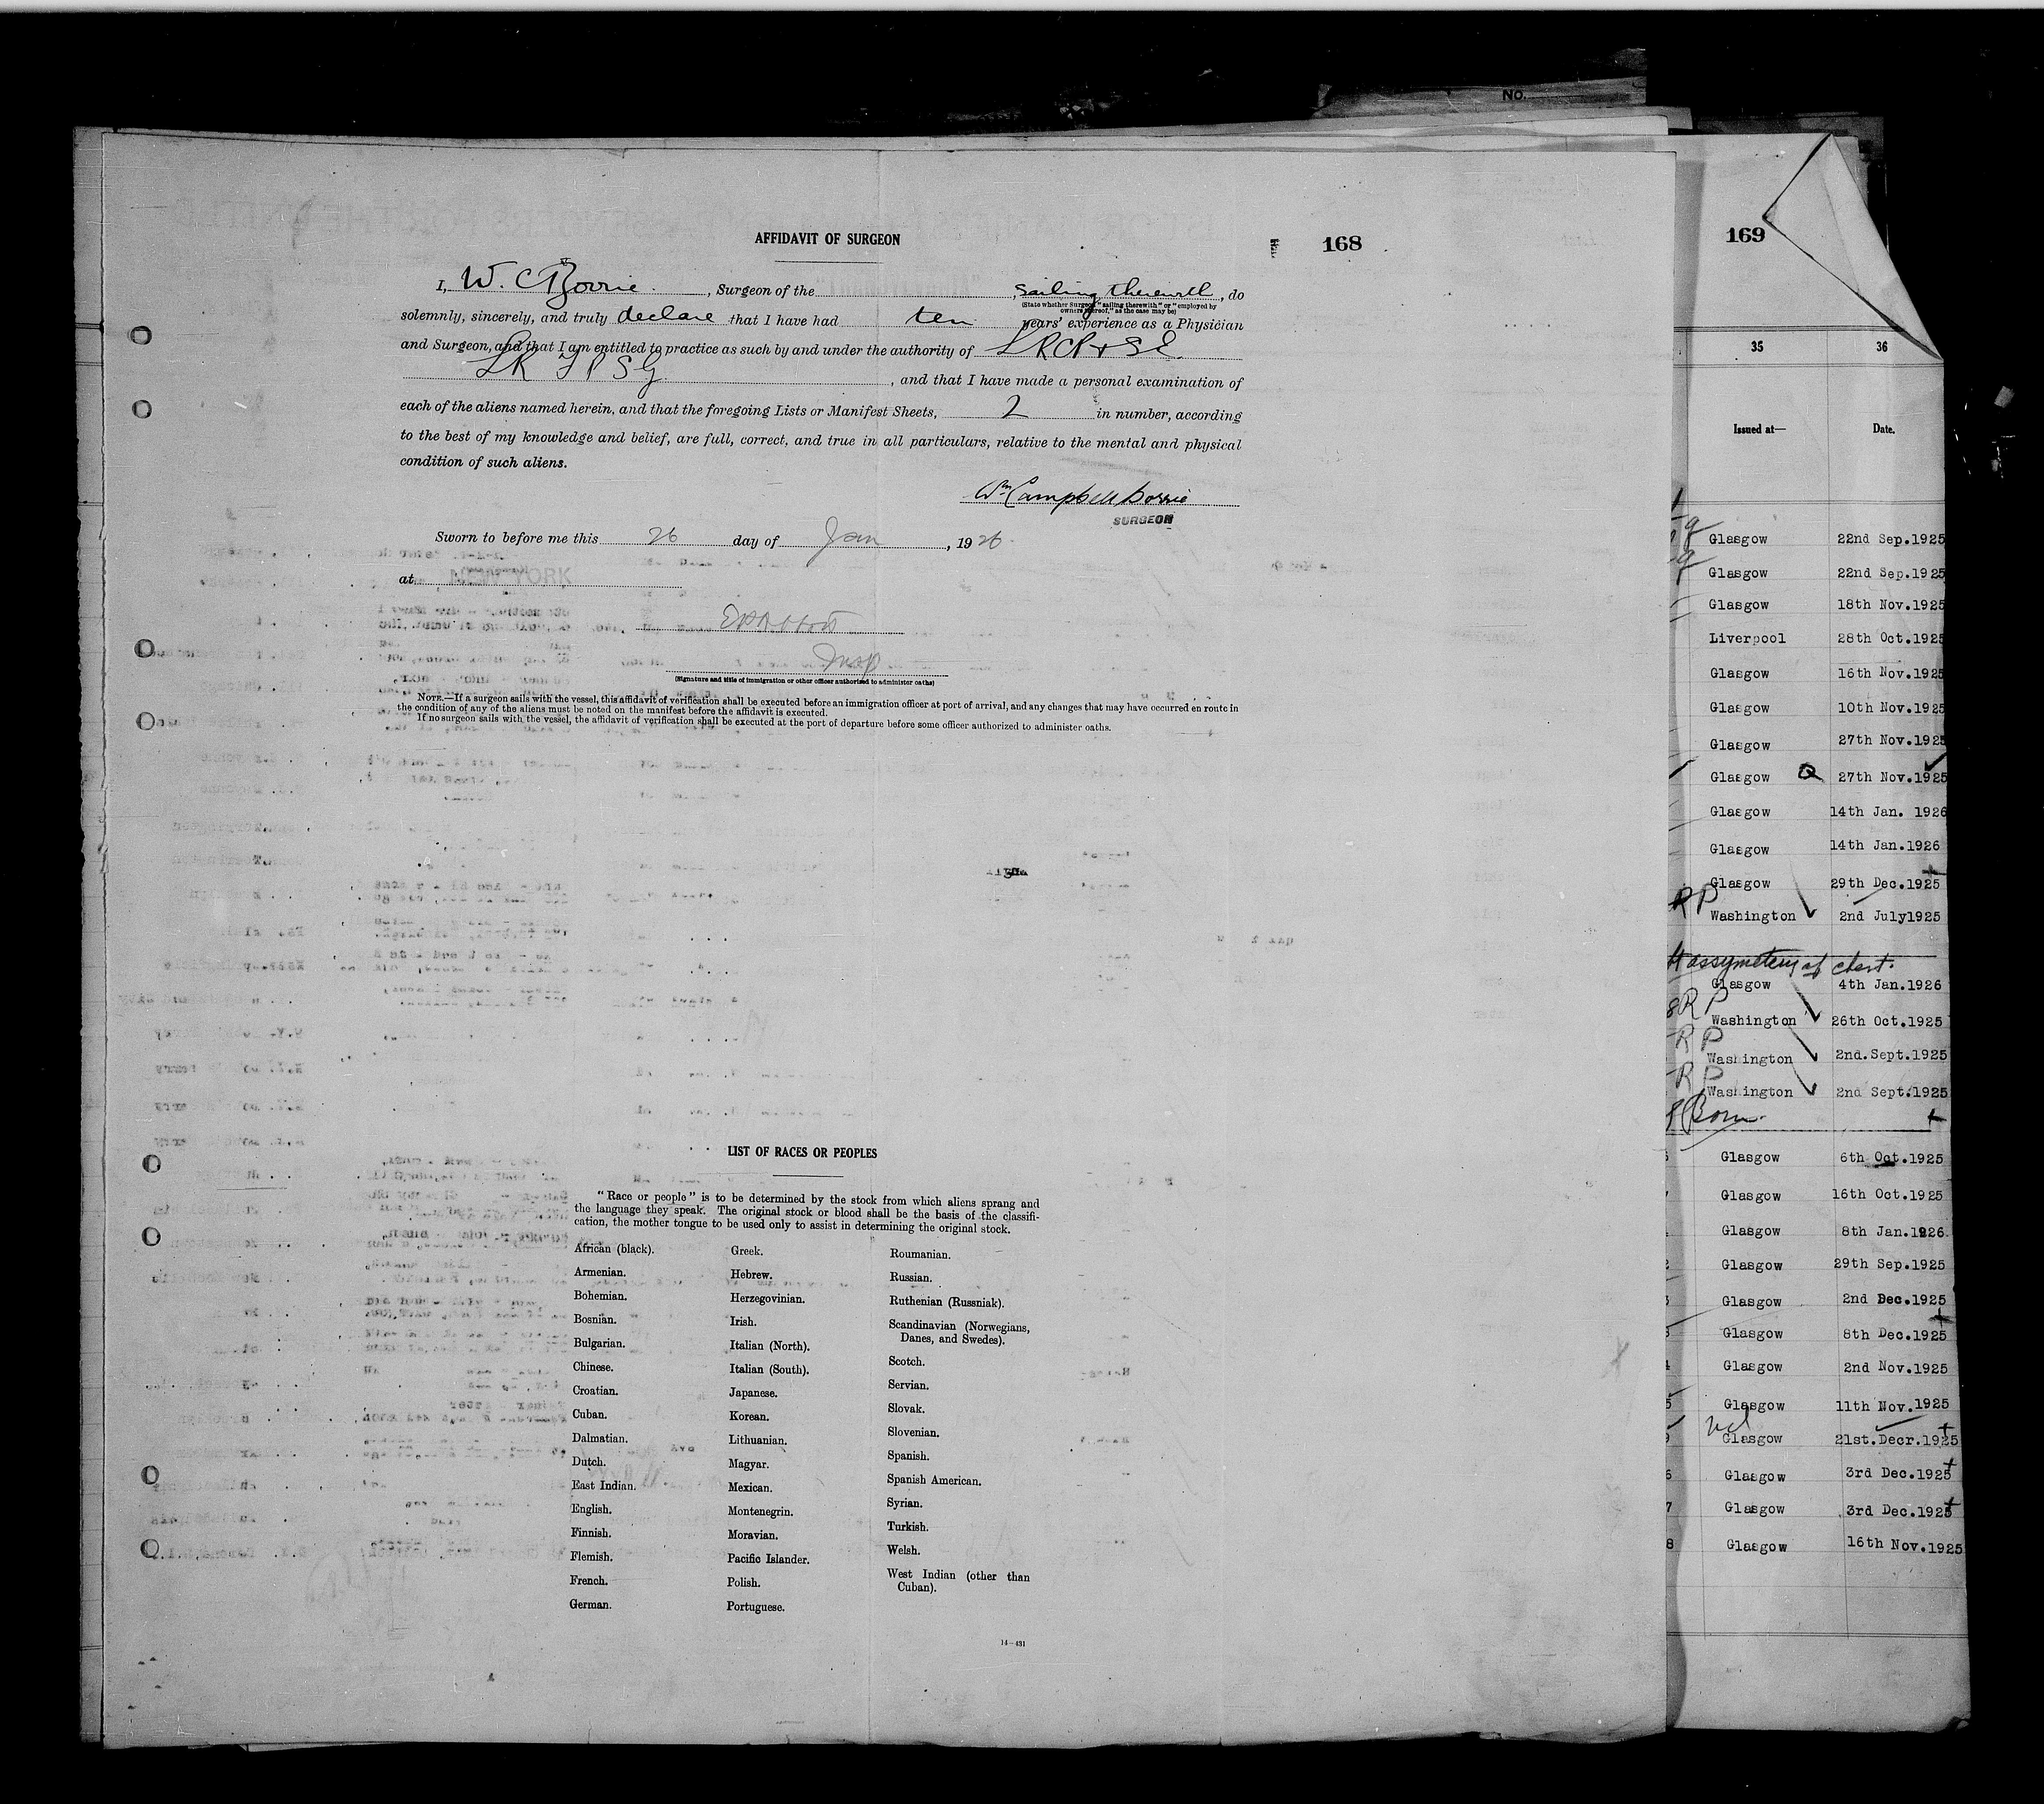 NO.
AFFIDAVIT OF SURGEON
168
I, W. C. Borrie , Surgeon of the , sailing therewith , do
(State whether Surgeon "sailing therewith" or "employed by
owners thereof," as the case may be)
solemnly, sincerely, and truly declare that I have had ten years' experience as a Physician
and Surgeon, and that I am entitled to practice as such by and under the authority of LRCP & SE
LR F P S G , and that I have made a personal examination of
each of the aliens named herein, and that the foregoing Lists or Manifest Sheets, 2 in number, according
to the best of my knowledge and belief, are full, correct, and true in all particulars, relative to the mental and physical
condition of such aliens.
Wm Campbell Borrie
SURGEON
Sworn to before me this 26 day of Jan , 19 26
at NEW YORK
Insp
(Signature and title of immigration or other officer authorized to administer oaths)
NOTE.—If a surgeon sails with the vessel, this affidavit of verification shall be executed before an immigration officer at port of arrival, and any changes that may have occurred en route in
the condition of any of the aliens must be noted on the manifest before the affidavit is executed.
If no surgeon sails with the vessel, the affidavit of verification shall be executed at the port of departure before some officer authorized to administer oaths.
LIST OF RACES OR PEOPLES
"Race or people" is to be determined by the stock from which aliens sprang and
the language they speak. The original stock or blood shall be the basis of the classifi-
cation, the mother tongue to be used only to assist in determining the original stock.
African (black).
Armenian.
Bohemian.
Bosnian.
Bulgarian.
Chinese.
Croatian.
Cuban.
Dalmatian.
Dutch.
East Indian.
English.
Finnish.
Flemish.
French.
German.
Greek.
Hebrew.
Herzegovinian.
Irish.
Italian (North).
Italian (South).
Japanese.
Korean.
Lithuanian.
Magyar.
Mexican.
Montenegrin.
Moravian.
Pacific Islander.
Polish.
Portuguese.
Roumanian.
Russian.
Ruthenian (Russniak).
Scandinavian (Norwegians,
Danes, and Swedes).
Scotch.
Servian.
Slovak.
Slovenian.
Spanish.
Spanish American.
Syrian.
Turkish.
Welsh.
West Indian (other than
Cuban).
14-431
169
35 36
Issued at— Date.
Glasgow 22nd Sep.1925
Glasgow 22nd Sep.1925
Glasgow 18th Nov.1925
Liverpool 28th Oct.1925
Glasgow 16th Nov.1925
Glasgow 10th Nov.1925
Glasgow 27th Nov.1925
Glasgow 27th Nov.1925
Glasgow 14th Jan. 1926
Glasgow 14th Jan.1926
Glasgow 29th Dec.1925
RP Washington 2nd July1925
assymetery of chest.
Glasgow 4th Jan.1926
RP Washington 26th Oct.1925
RP Washington 2nd.Sept.1925
RP Washington 2nd Sept.1925
Born
Glasgow 6th Oct.1925
Glasgow 16th Oct.1925
Glasgow 8th Jan.1926.
Glasgow 29th Sep.1925
Glasgow 2nd Dec.1925
Glasgow 8th Dec.1925
Glasgow 2nd Nov.1925
Glasgow 11th Nov.1925
Glasgow 21st.Decr.1925
6 Glasgow 3rd Dec.1925
7 Glasgow 3rd Dec.1925
8 Glasgow 16th Nov.1925